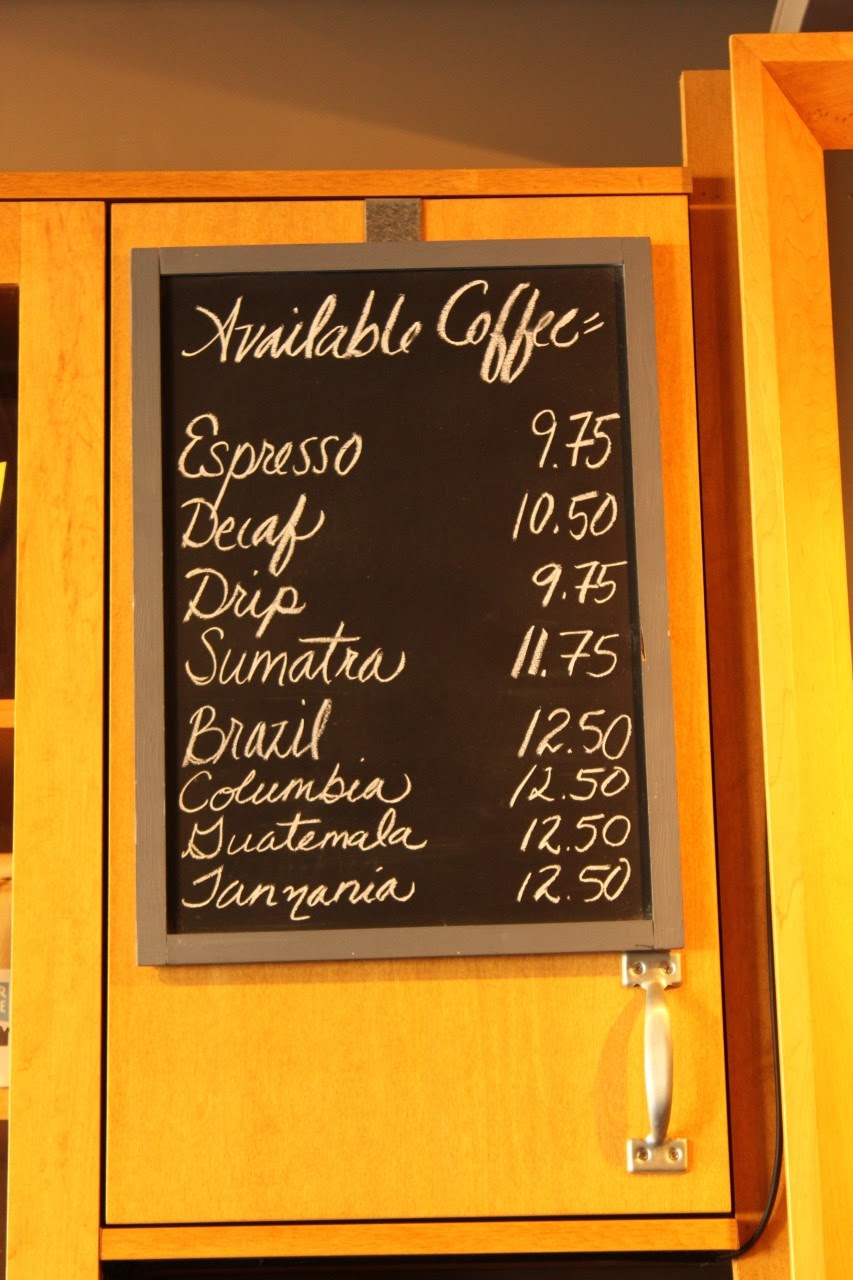 Available Coffee=
Espresso 9.75
Decaf 10.50
Drip 9.75
Sumatra 11.75
Brazil 12.50
Columbia 12.50
Guatemala 12.50
Tanzania 12.50